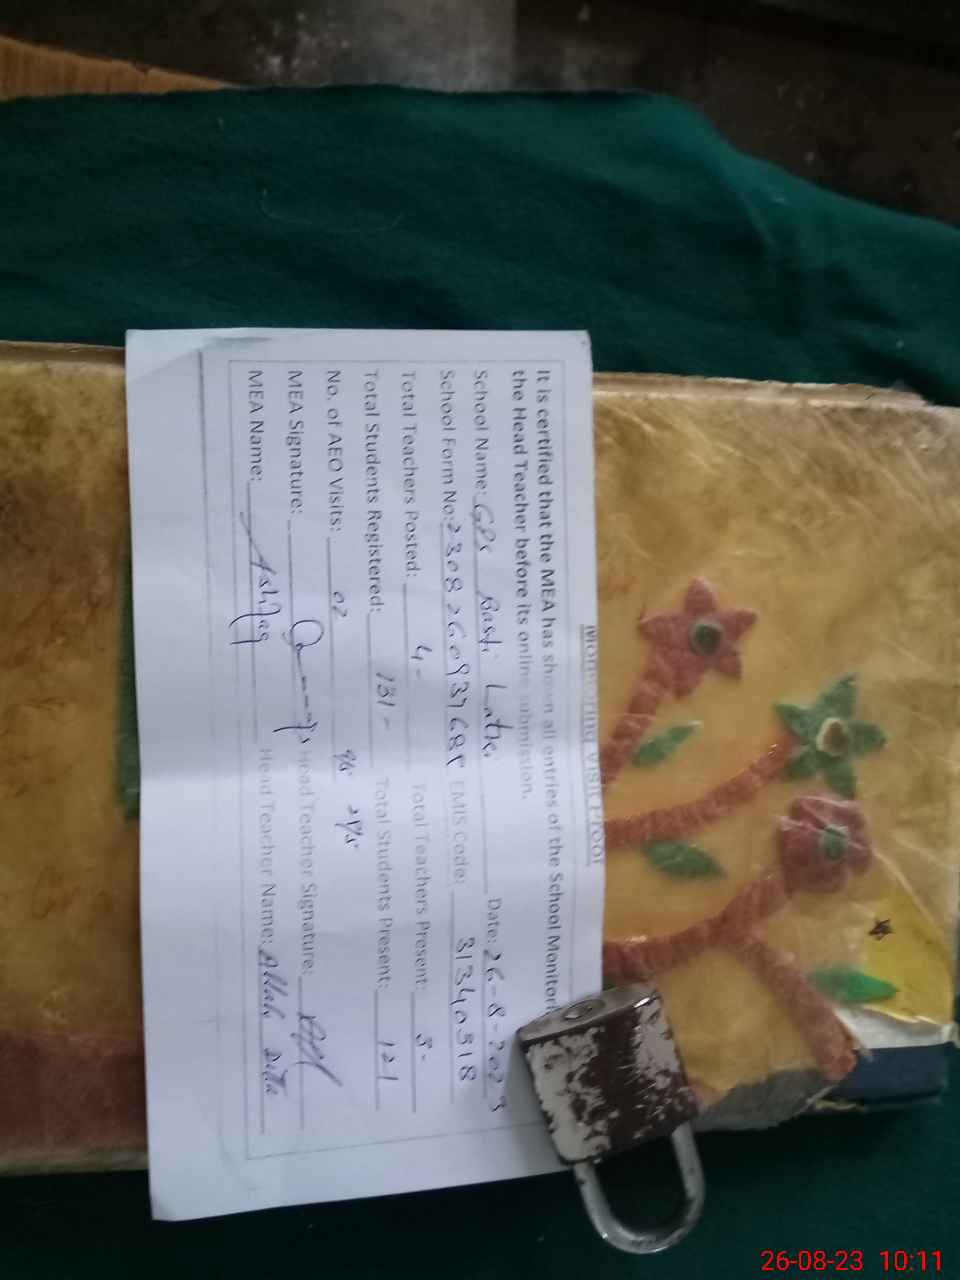 Monitoring Visit Proof
It is certified that the MEA has shown all entries of the School Monitori
the Head Teacher before its online submission.
School Name: GPS Basti Date: 26-8-2023
School Form No: EMIS Code: 31340318
Total Teachers Posted: 4- Total Teachers Present: 3-
Total Students Registered: 131- Total Students Present: 121
No. of AEO Visits: 02
MEA Signature: Head Teacher Signature:
MEA Name: Ashfaq Head Teacher Name: Allah Ditta
26-08-23 10:11